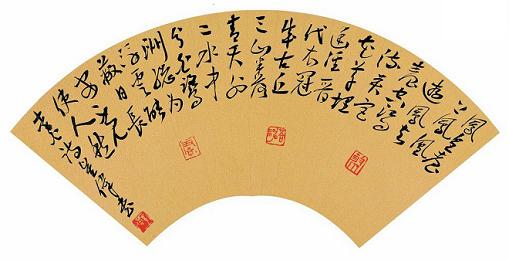 鳳凰臺
上鳳凰
遊鳳去
臺空江
自流吳宮
花草埋
幽徑晉
代衣冠
成古丘
三山半落
青天外
二水中
分白鷺
洲總為
浮雲能
蔽日長
安不見
使人
愁